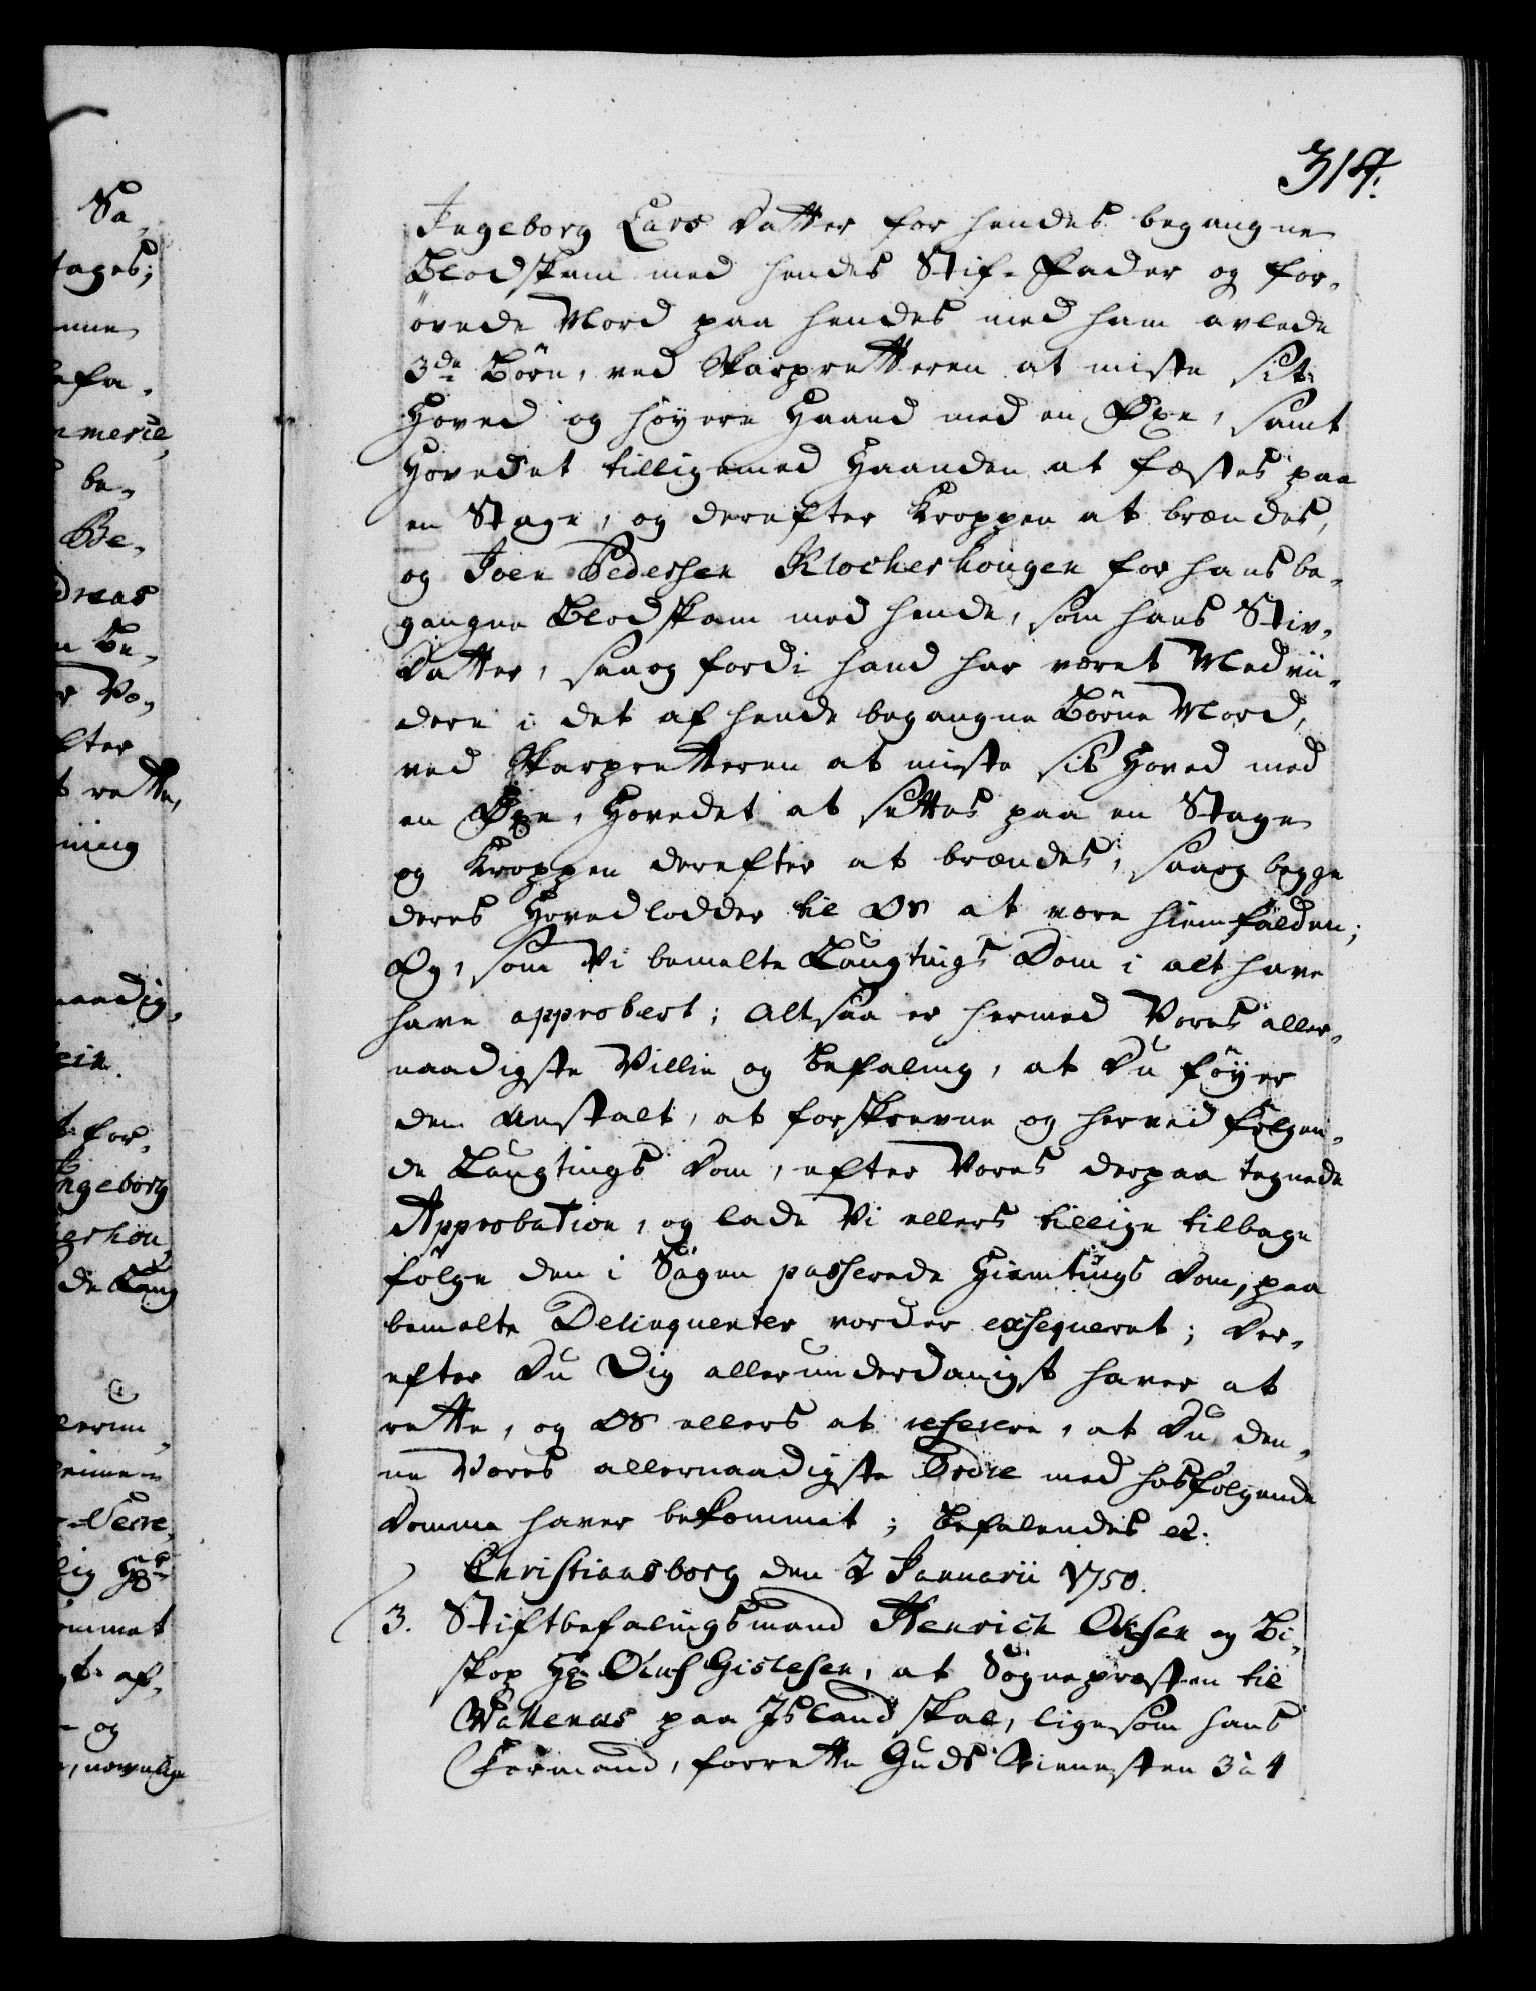 314.
Ingeborg Lars Datter for hendes begangne
Blodskam med hendes Stif-Fader og for-
övede Mord paa hendes med ham avlede
3de Börn, ved Skarpretteren at miste sit
Hoved og höyere Haand med en Öxe, samt
Hovedet tilligemed Haanden at fæstes paa
en Stage, og derefter Kroppen at brændes,
og Joen Pedersen Klocherhougen for hans be-
gangne Blodskam med hende, som hans Stiv-
Datter, saa og fordi hand har været Medvii-
dere i det af hende begangne Börne Mord,
ved Skarpretteren at miste sit Hoved med
en Öxe, Hovedet at settes paa en Stage
og Kroppen derefter at brændes, saa og begge
deres Hovedlodder til Os at være hiemfalden;
Og, som Vi bemelte Laugtings Dom i alt have
have approbert; Altsaa er hermed Vores aller-
naadigste Villie og Befaling, at Du föyer
den Anstalt, at forskrevne og herved fölgen-
de Laugtings Dom, efter Vores derpaa tegnede
Approbation, og lade Vi ellers tillige tilbage
fölge den i Sagen passerede Hiemtings Dom, paa
bemelte Delinquenter vorder exsequeret; Der-
efter Du Dig allerunderdanigst haver at
rette, og Os ellers at referere, at Du den-
ne Vores allernaadigste Ordre med hosfölgende
Domme haver bekommet; Befalendes etc.
Christiansborg den 2 Januarii 1750.
3. Stiftbefalingsmand Henrich Ocksen og Bi-
skop Hr. Oluf Gislesen, at Sognepræsten til
Wallenæs paa Island skal, ligesom hans
Formand, forrette Guds Tienesten 3 à 4
Sa-
tages;
mmerie,
be-
Be-
dreas
Vo-
fter
t rette,
ning
t for-
Ingeborg
erhou
de Laug
lerun-
mmet
t af-
og